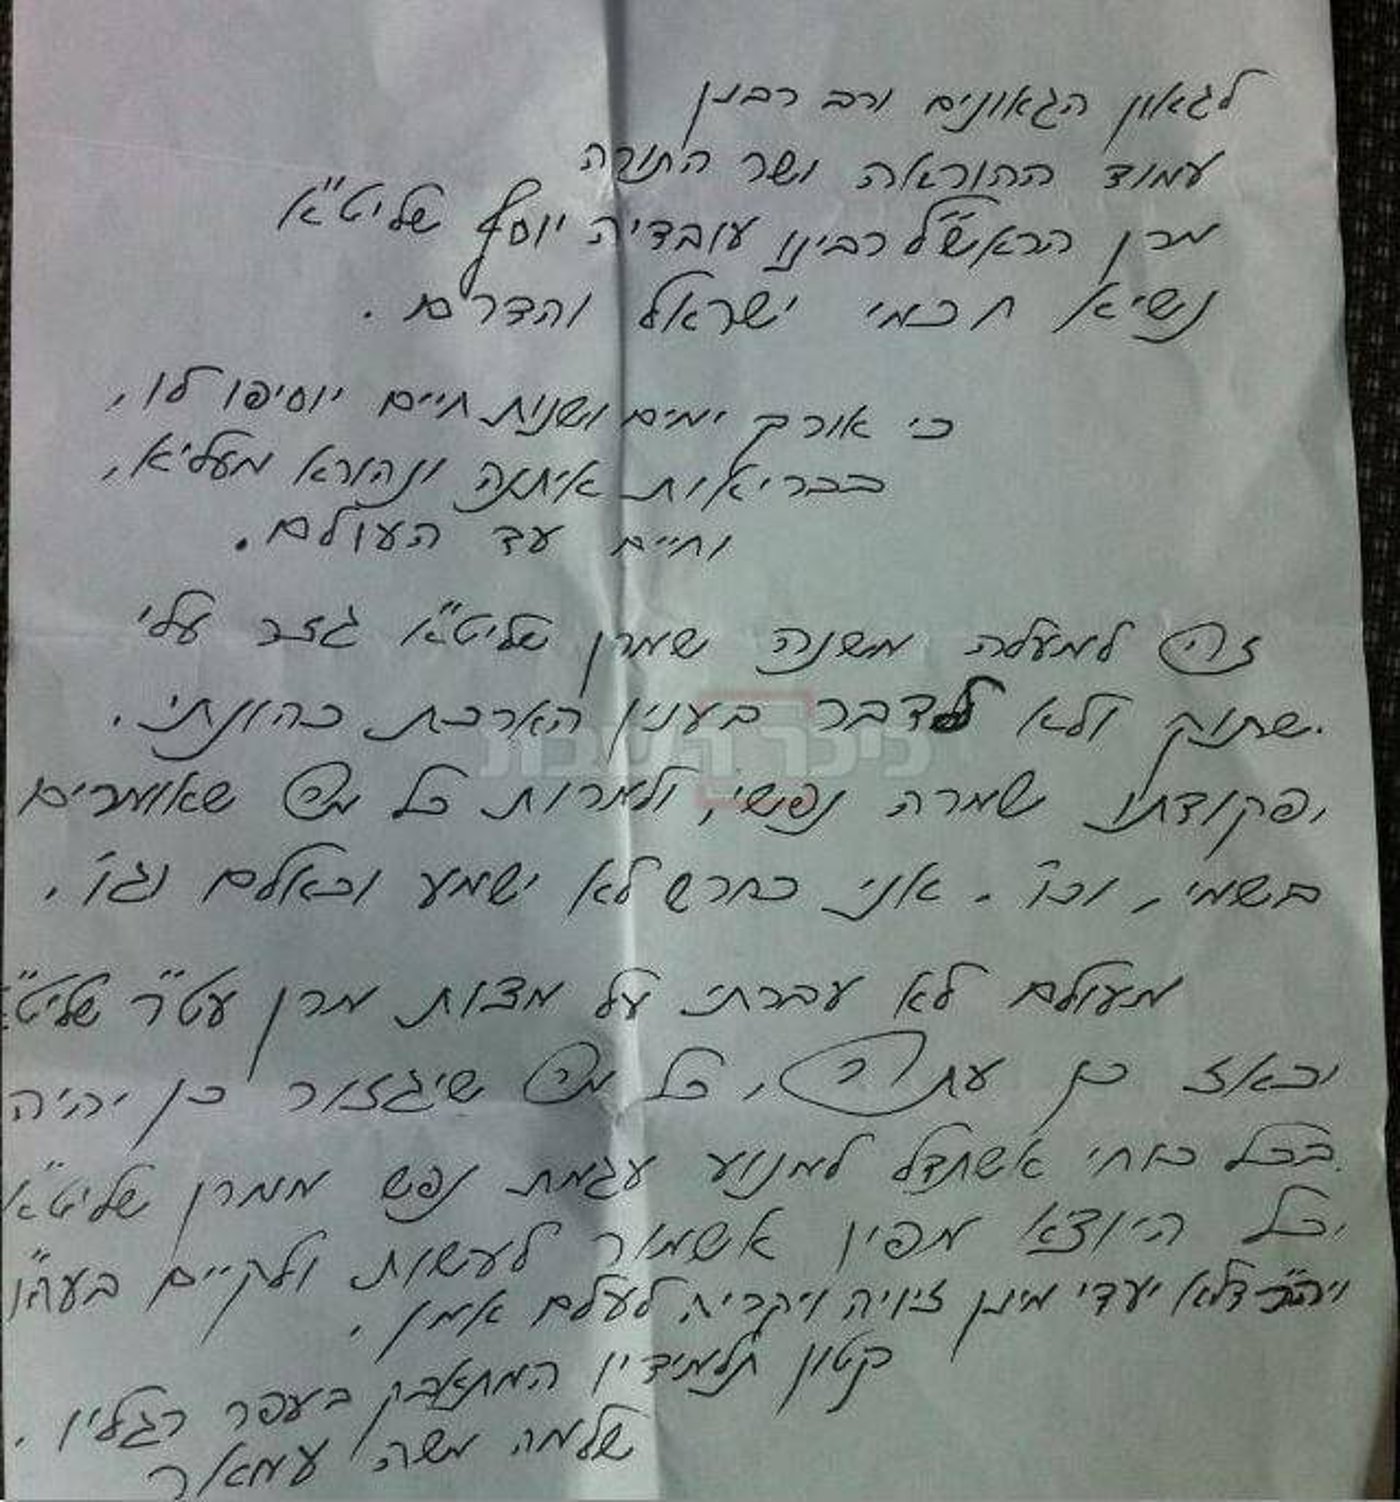 לגאון הגאונים ורב רבנן
עמוד ההוראה ושר התורה
מרן הראש"ל רבינו עובדיה יוסף שליט"א
נשיא חכמי ישראל והדרם.
כי אורך ימים ושנות חיים יוסיפו לו,
בבריאות איתנה ונהורא מעליא,
וחיים עד העולם.
זה למעלה משנה שמרן שליט"א גזר עלי
שתוק ולא לדבר בענין הארכת כהונתי.
פקודתו שמרה נפשי, ולמרות כל מה שאומרים
בשמי, וכו'. אני כחרש לא ישמע וכאלם וגו',
מעולם לא עברתי על מצות מרן עט"ר שליט"א
וכאז כן עתה, כל מה שיגזור כן יהיה
בכל כוחי אשתדל למנוע עגמת נפש ממרן שליט"א
וכל היוצא מפיו אשמור לעשות ולקיים בעה"ו
ויה"ר דלא יעדי מינן זיויה ויקריה לעלם אמן,
קטון תלמידיו המתאבק בעפר רגליו,
שלמה משה עמאר
כיכר השבת